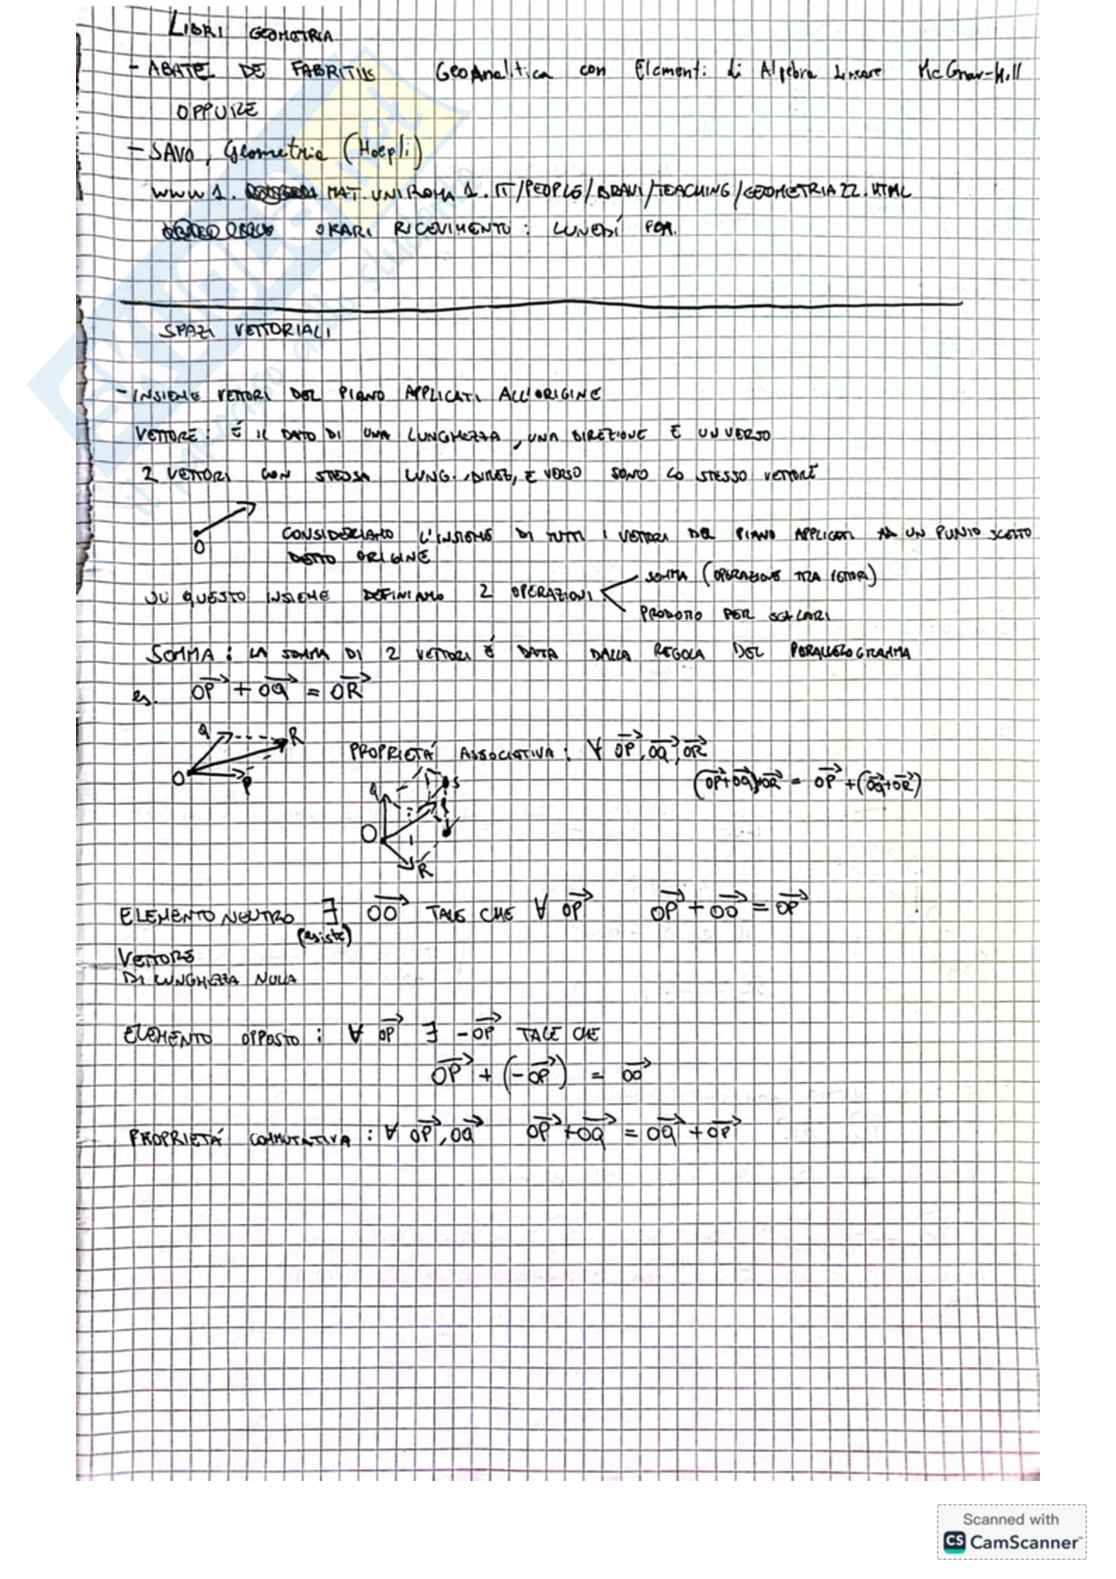 LIBRI GEOMETRIA
- ABATE DE FABRITIIS GeoAnalitica con Elementi di Algebra Lineare McGraw-Hill
OPPURE
- SAVO, Geometria (Hoepli)
WWW1. MAT.UNIROMA1.IT/PEOPLE/BRAVI/TEACHING/GEOMETRIA22.HTML
ORARI RICEVIMENTO: LUNEDÍ POM.
SPAZI VETTORIALI
- INSIEME VETTORI DEL PIANO APPLICATI ALL'ORIGINE
VETTORE: É IL DATO DI UNA LUNGHEZZA, UNA DIREZIONE E UN VERSO
2 VETTORI CON STESSA LUNG., DIREZ, E VERSO SONO LO STESSO VETTORE
O
CONSIDERIAMO L'INSIEME DI TUTTI I VETTORI DEL PIANO APPLICATI AD UN PUNTO SCELTO
DETTO ORIGINE
SU QUESTO INSIEME DEFINIAMO 2 OPERAZIONI
SOMMA (OPERAZIONE TRA VETTORI)
PRODOTTO PER SCALARI
SOMMA: LA SOMMA DI 2 VETTORI É DATA DALLA REGOLA DEL PARALLELOGRAMMA
es. OP + OQ = OR
Q R
O P
PROPRIETÁ ASSOCIATIVA: ∀ OP, OQ, OR
(OP+OQ)+OR = OP+(OQ+OR)
Q S
O
R
ELEMENTO NEUTRO ∃ OO TALE CHE ∀ OP OP + OO = OP
(esiste)
VETTORE
DI LUNGHEZZA NULLA
ELEMENTO OPPOSTO: ∀ OP ∃ -OP TALE CHE
OP + (-OP) = OO
PROPRIETÁ COMMUTATIVA: ∀ OP, OQ OP+OQ = OQ+OP
Scanned with
CS CamScanner